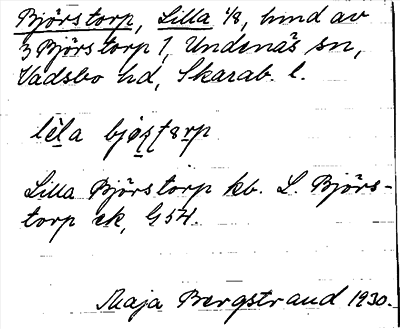 Björstorp, Lilla 1/8, hmd av
3 Björstorp 1, Undenäs sn,
Vadsbo hd, Skarab. l.
Lilla Björstorp kb. L. Björs-
torp ek, G 54.
Maja Bergstrand 1930.